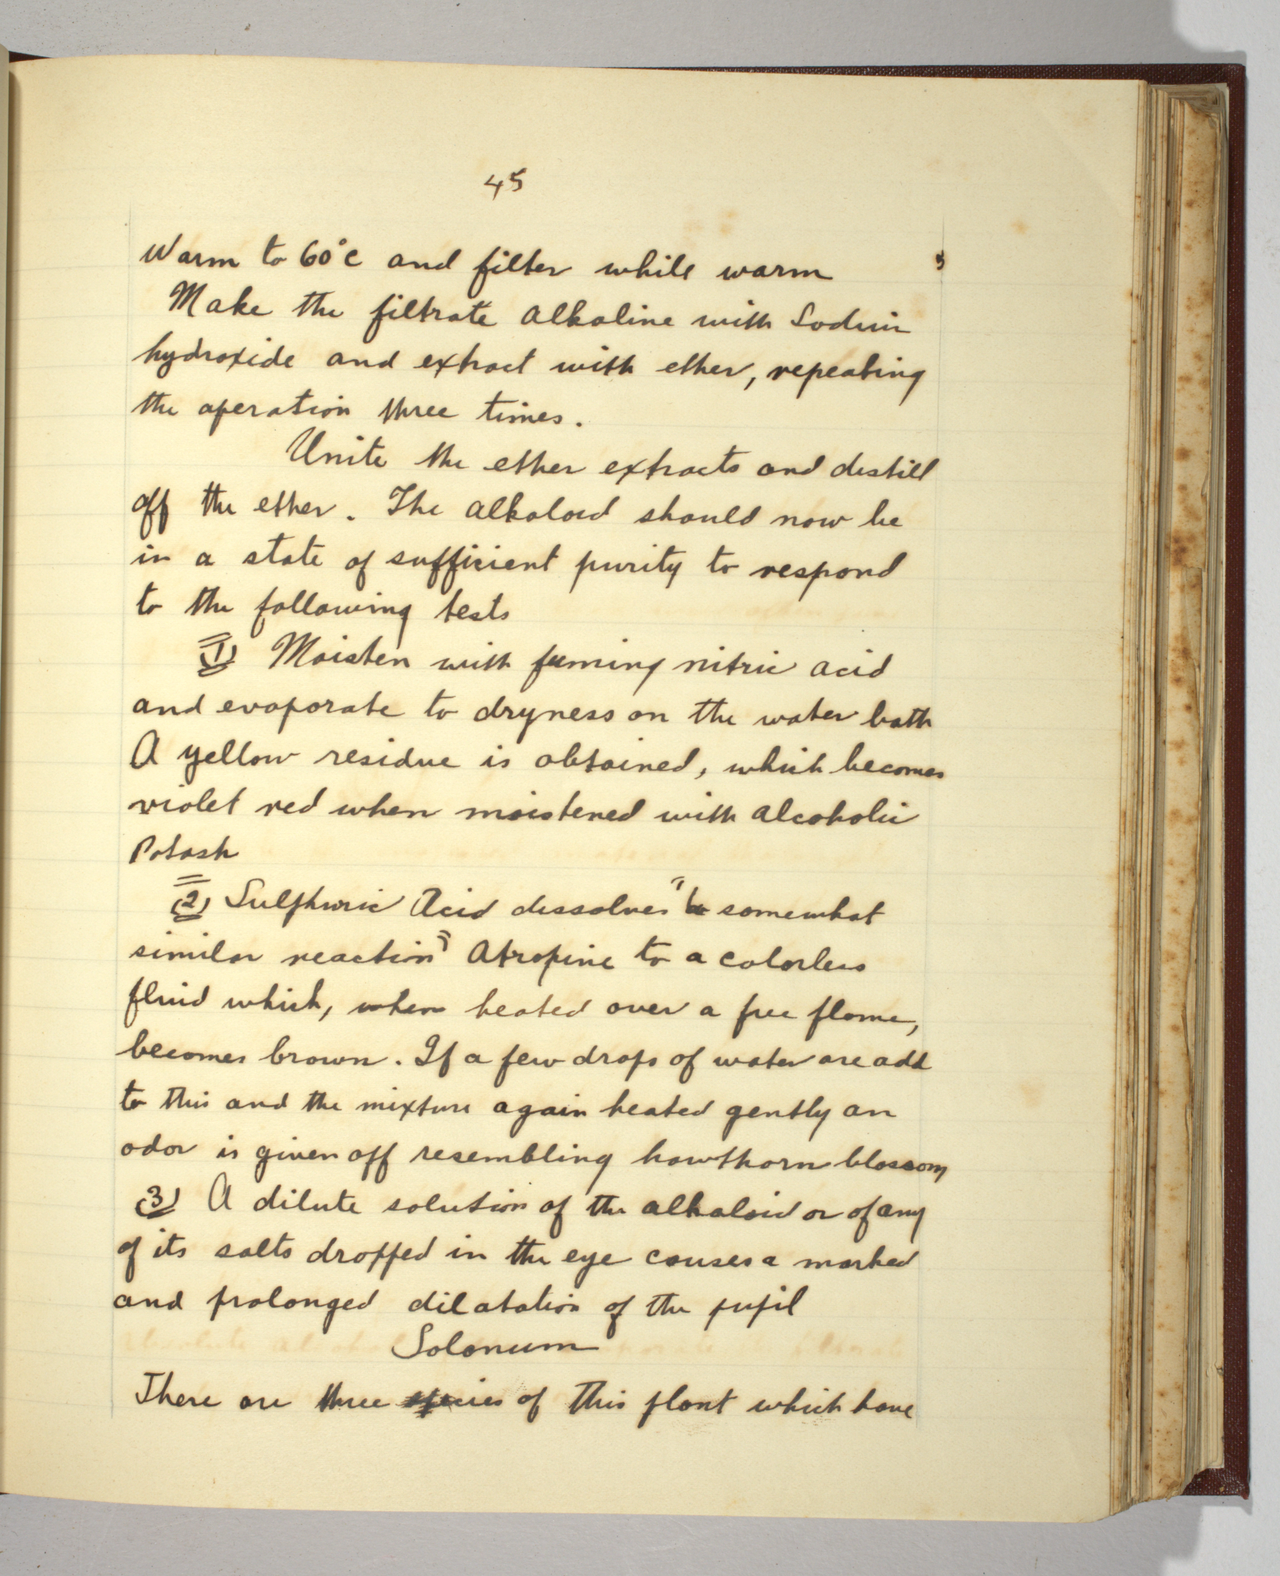 45
Warm to 60°C and filter while warm
Make the filtrate alkaline with Sodium
hydroxide and extract with ether, repeating
the operation three times.
Unite the ether extracts and distill
off the ether. The alkaloid should now be
in a state of sufficient purity to respond
to the following tests
(1) Moisten with fuming nitric acid
and evaporate to dryness on the water bath
A yellow residue is obtained, which becomes
violet red when moistened with alcoholic
Potash
(2) Sulphuric Acid dissolves "(a somewhat
similar reaction") Atropine to a colorless
fluid which, when heated over a free flame,
becomes brown. If a few drops of water are add
to this and the mixture again heated gently an
odor is given off resembling hawthorn blossom
(3) A dilute solution of the alkaloid or of any
of its salts dropped in the eye causes a marked
and prolonged dilatation of the pupil
Solanum
There are three species of this plant which have